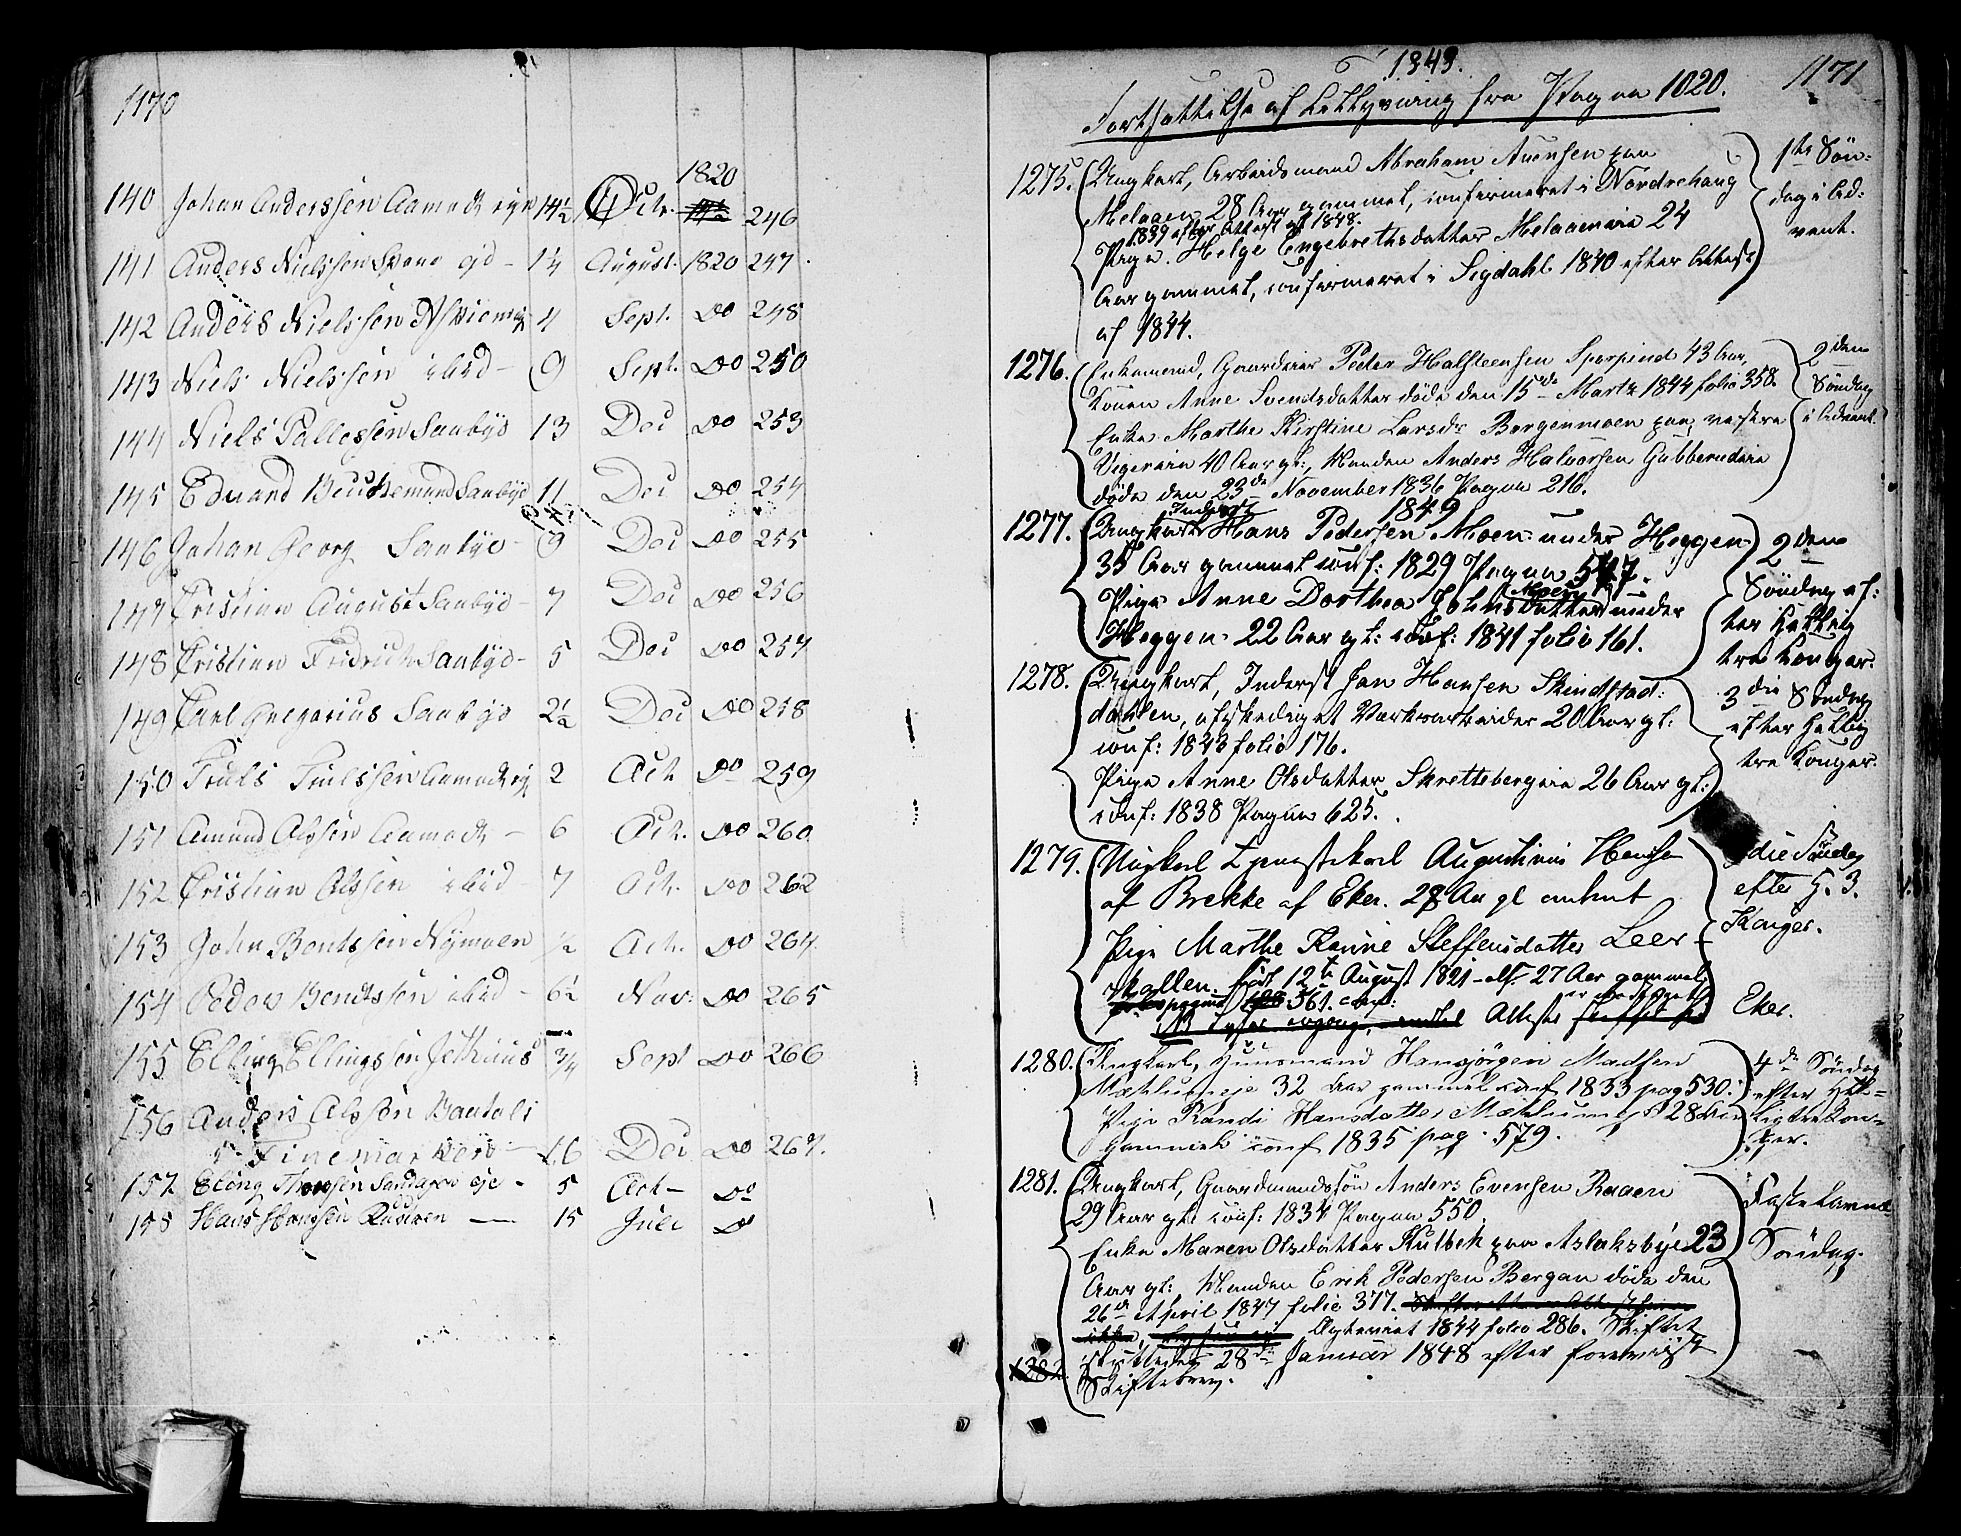 1170
1820
140 Johan Anderssen Aamodt eje 14½ Octr. 246
141 Anders Nielssen eid - 1¼ August. 1820 247
142 Anders Nielssen 4 Sept. Do 248
143 Niels Nielssen ibid - 9 Sept. Do 250
144 Niels Pallessen Sanbye 13 Dec Do 253
145 Eduard Sanbye 11 Dec Do 254
146 Johan Georg Sanbye - 9 Dec Do 255
147 Cristian August Sanbye - 7 Dec Do 256
148 Cristian Fridrich Sanbye - 5 Dec Do 257
149 Carl Gregorius Sanbye 2½ Dec Do 258
150 Truls Trulssen Aamodt eje 2 Oct. Do 259
151 Amund Olssen Aamodt - 6 Oct. Do 260
152 Cristian Olssen ibid - 7 Oct. Do 262
153 John Bentssen Nymoen ½ Oct. Do 264
154 Peder Bentssen ibid - 6½ Nov: Do 265
155 Elling Ellingssen ¾ Sept Do 266
156 Anders Olssen
16 Dec Do 267.
157 Eling eje - 5 Oct - Do
158 Hans Hanssen — 15 Juli Do
1848. 1171
Fortsættelse af Lellysning fra Pagina 1020.
1275. Ungkarl, Arbeidsmand Abraham Auensen paa
Melaaen 28 Aar gammel, confirmeret i Nordrehoug
1839 efter Attest af 1848.
Pige Helge Engebrethsdatter Melaaeneie 24
Aar gammel, confirmeret i Sigdahl 1840 efter Attest
af 1844.
1ste Søn-
dag i Ad-
vent.
1276. Enkemand, Gaardeier Peder Halsteensen Sperpind 43 Aar,
Konen Anne Svendsdatter døde den 15de Marts 1844 folio 358.
Enke Marthe Kirstine Larsdr Bergenmoen paa vestre
Vigereie 40 Aar gl:, Manden Anders Halvorsen Gubberudeie
døde den 23de November 1836 Pagina 216.
2den
Søndag
i Advent.
1849
1277. Ungkarl Inderst Hans Pedersen Moen under Heggen
35 Aar gammel conf: 1829 Pagina 547.
Pige Anne Dorthea Johnsdatter Moen under
Heggen 22 Aar gl: conf: 1841 folio 161.
2den
Søndag ef-
ter Hellig
tre Konger.
1278. Ungkarl, Inderst Jan Hansen Skindstad-
dalen, afskediget Værksarbeider 20 Aar gl:
conf: 1843 folio 176.
Pige Anne Olsdatter Skrettebergeie 26 Aar gl:
conf: 1838 Pagina 625.
3die Søndag
efter Hellig
tre Konger.
1279. Ungkarl Tjenestekarl Augustinus Hansen
af Brekke af Eker. 28 Aar gl
Pige Marthe Karine Steffensdatter Leer-
skallen. født 12te August 1821 27 Aar gammel
361. conf:
Attest
die Søndag
efter H. 3.
Konger.
Eker.
1280. Ungkarl, Huusmand Hansjørgen Madsen
Mæhlumeje 32 Aar gammel conf 1833 pag 530.
Pige Randi Hansdatter Mæhlumeje 28 Aar
Gammel conf 1835 pag 579.
4de Søndag
efter Hel-
ligtrekon-
ger.
1281. Ungkarl, Gaardmandssøn Anders Evensen Raaen
29 Aar gl: conf: 1834 Pagina 550.
Enke Maren Olsdatter Kulbek paa Aslaksbye 23
Aar gl: Manden Erik Pedersen Bergan døde den
26de April 1847 folio 377.
Ægteviet 1844 folio 286. Skiftet
sluttedes 28de Januar 1848 efter foreviist
Skiftebrev.
Fastelavns
Søndag.
1282